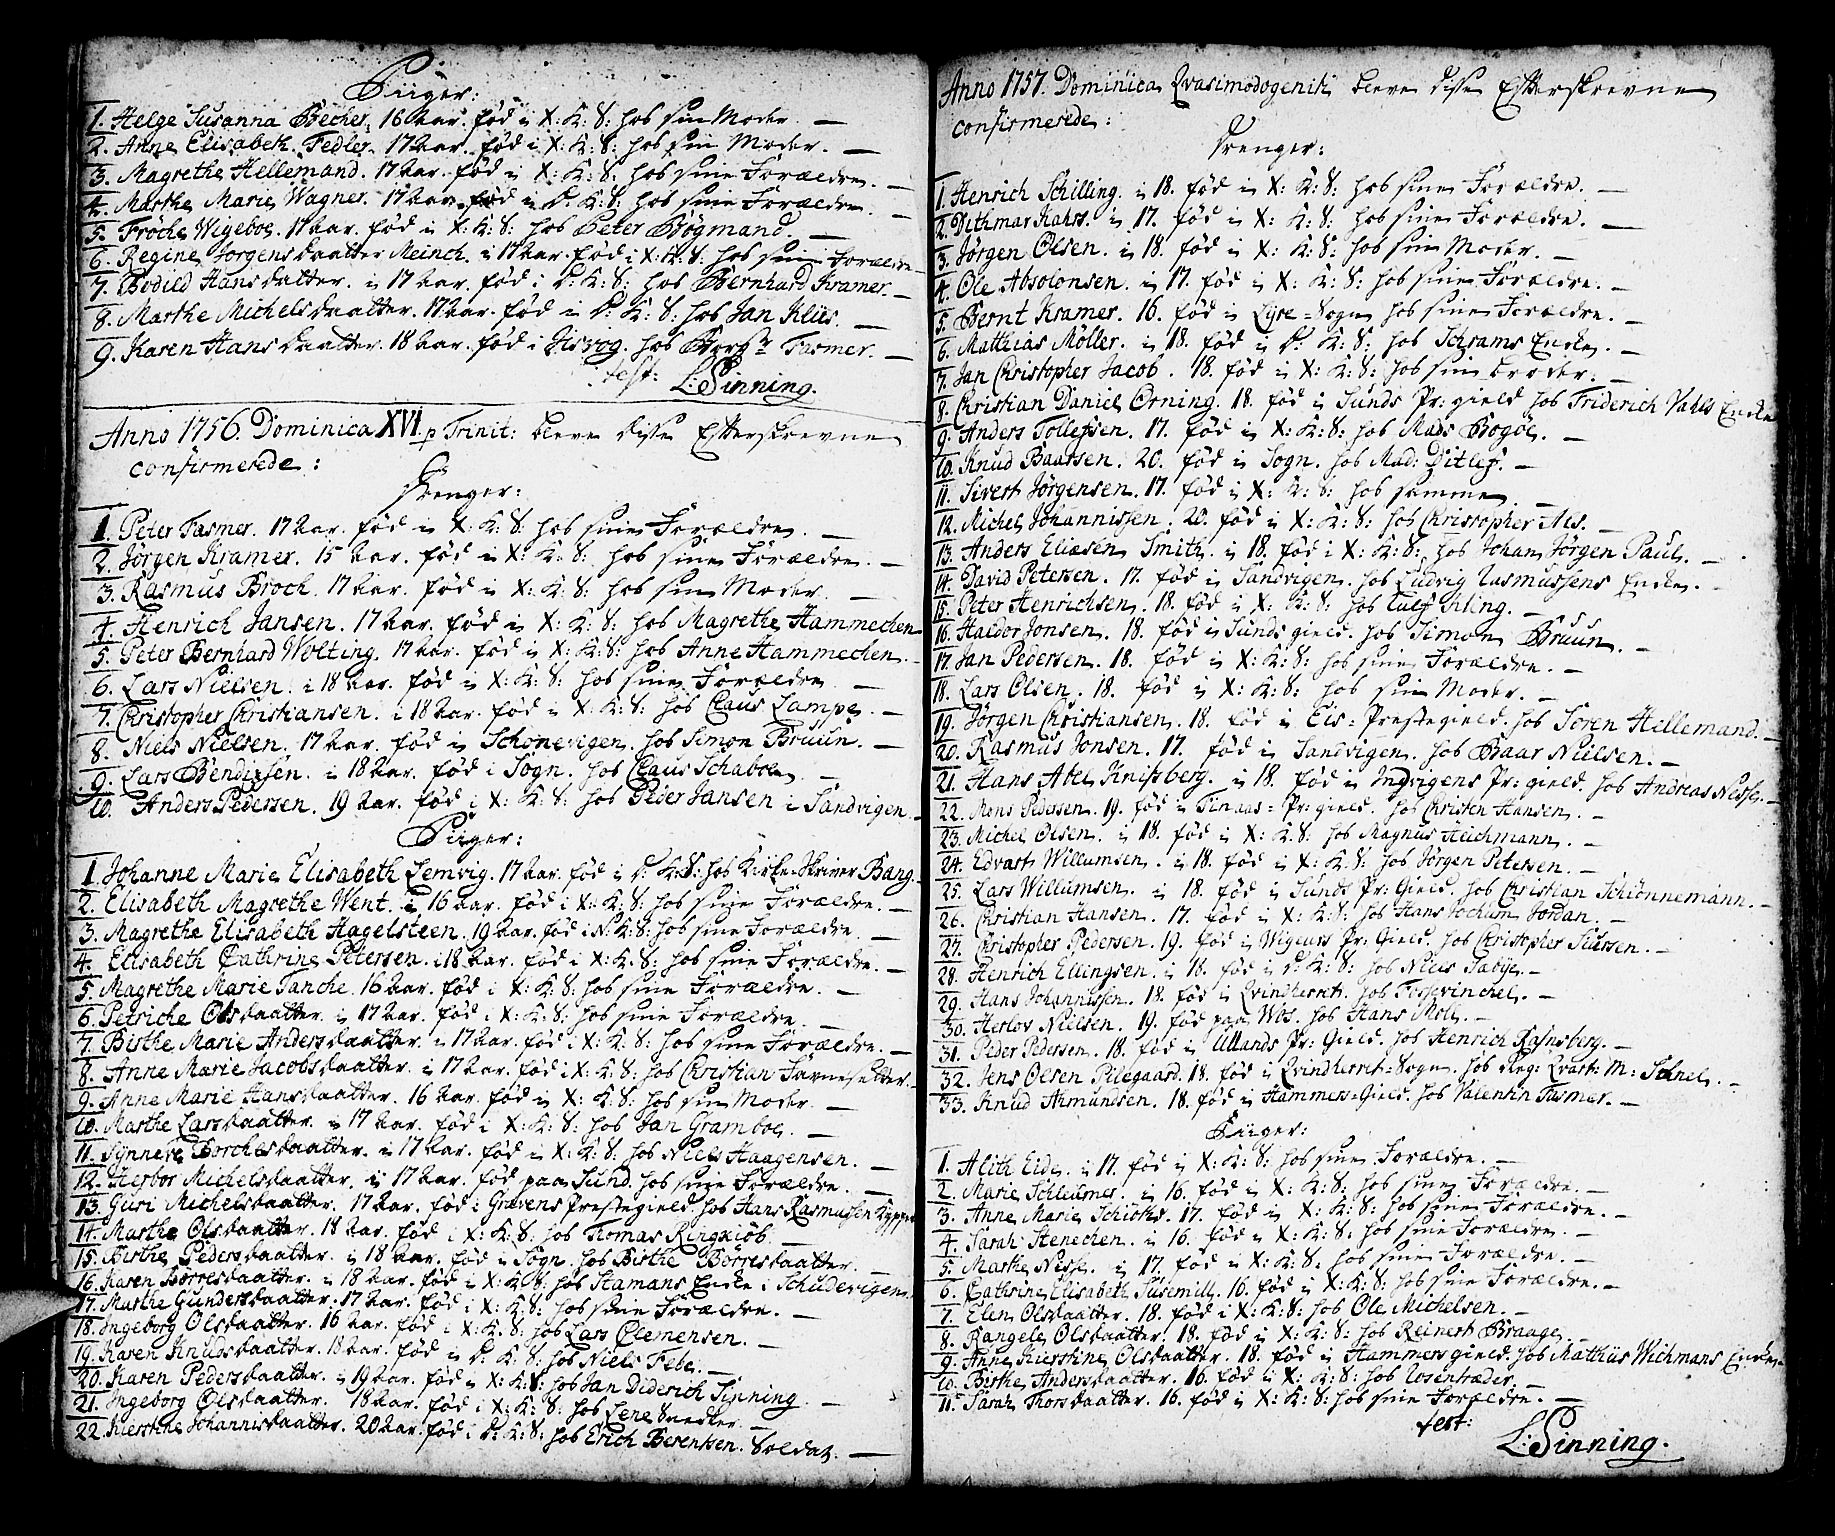 Piiger:
1. Helge Susanna Becher, 16 Aar. fød i X: K: S: hos sin Moder. —
2. Anne Elisabeth Fedler. 17 Aar. fød i X: K: S: hos sin Moder. —
3. Magrethe Hellemand. 17 Aar. fød i X: K: S: hos sine Forældre. —
4. Marthe Marie Wagner. 17 Aar. fød i D: K: S: hos sine Forældre. —
5. Frøche Wigeboe. 17 Aar. fød i X: K: S: hos Peter Bøgmand. —
6. Regine Jørgensdaatter Meinch. i 17 Aar. fød i X: K: S: hos sine Forældre
7. Bodild Hansdatter. i 17 Aar. fød i D: K: S: hos Bernhard Kramer. —
8. Marthe Michelsdaatter. 17 Aar. fød i D: K: S: hos Jan Klües. —
9. Karen Hansdaatter. 18 Aar. fød i hos Tasmer. —
test: L: Sinning.
Anno 1756. Dominica XVI p Trinit: bleve disse Efterskrevne
confirmerede:
Drenger:
1. Peter Tasmer. 17 Aar. fød i X: K: S: hos sine Forældre. —
2. Jørgen Kramer. 15 Aar. fød i X: K: S: hos sine Forældre. —
3. Rasmus Broch. 17 Aar. fød i X: K: S: hos sin Moder. —
4. Henrich Jansen. 17 Aar. fød i X: K: S: hos Magrethe Hammechen
5. Peter Bernhard Wolting. 17 Aar. fød i X: K: S: hos Anne Hammechen. —
6. Lars Nielsen. i 18 Aar. fød i X: K: S: hos sine Forældre. —
7. Christopher Christiansen. i 18 Aar. fød i X: K: S: hos Claus Lampe. —
8. Niels Nielsen. 17 Aar. fød i Schonevigen. hos Simon Bruun. —
9. Lars Bendixsen. i 18 Aar. fød i Sogn. hos Claus Schaboe. —
10. Anders Pedersen. 19 Aar. fød i X: K: S: hos Peter Jansen i Sandvigen. —
Piiger:
1. Johanne Marie Elisabeth Lemvig. 17 Aar. fød i D: K: S: hos Kirke Skriver Bang. —
2. Elisabeth Magrethe Went. i 16 Aar. fød i X: K: S: hos sine Forældre. —
3. Magrethe Elisabeth Hagelsteen. 19 Aar. fød i N: K: S: hos sine Forældre. —
4. Elisabeth Cathrine Petersen. i 18 Aar. fød i X: K: S: hos sine Forældre. —
5. Magrethe Marie Tanche. 16 Aar. fød i X: K: S: hos sine Forældre. —
6. Petriche Olsdaatter. i 17 Aar. fød i X: K: S: hos sine Forældre. —
7. Birthe Marie Andersdaatter. i 17 Aar. fød i X: K: S: hos sine Forældre. —
8. Anne Marie Jacobsdaatter. i 17 Aar. fød i X: K: S: hos Christian
9. Anne Marie Hansdaatter. 16 Aar. fød i X: K: S: hos sin Moder. —
10. Marthe Larsdaatter. i 17 Aar. fød i X: K: S: hos Jan Gramboe. —
11. Synneve Borchesdaatter. i 17 Aar. fød i X: K: S: hos Niels Haagensen. —
12. Herbor Michelsdaatter. i 17 Aar. fød paa Sund. hos sine Forældre. —
13. Guri Michelsdaatter. 17 Aar. fød i Gravens Præstegield. hos Hans Rasmussen Kypper
14. Marthe Olsdaatter. 18 Aar. fød i X: K: S: hos Thomas Ringkiøb. —
15. Birthe Pedersdaatter. i 18 Aar. fød i Sogn. hos Birthe Børresdaatter. —
16. Karen Børresdaatter. i 18 Aar. fød i X: K: S: hos Stamans Encke i Schudevigen.
17. Marthe Gundersdaatter. 17 Aar. fød i X: K: S: hos sine Forældre. —
18. Ingeborg Olsdaatter. 16 Aar. fød i X: K: S: hos Lars Clemensen. —
19. Karen Knudsdaatter. 18 Aar. fød i D: K: S: hos Niels Febe.
20. Karen Pedersdaatter. i 19 Aar. fød i X: K: S: hos Jan Diderich Sinning. —
21. Ingeborg Olsdaatter. 18 Aar. fød i X: K: S: hos Lene Snedker. —
22. Kierstine Johannisdaatter. 20 Aar. fød i D: K: S: hos Erich Berentsen. Soldat. —
Anno 1757. Dominica Qvasimodogeniti bleve disse Efterskrevne
confirmerede:
Drenger:
1. Henrich Schilling. i 18. fød i X: K: S: hos sine Forældre. —
2. Dithmar Kahrs. i 17. fød i X: K: S: hos sine Forældre. —
3. Jørgen Olsen. i 18. fød i X: K: S: hos sin Moder. —
4. Ole Absolonsen. i 17. fød i X: K: S: hos sine Forældre. —
5. Bernt Kramer. 16. fød i Eyre-Sogn hos sine Forældre. —
6. Matthias Møller. i 18. fød i D: K: S: hos Schrams Encke. —
7. Jan Christopher Jacob. 18. fød i X: K: S: hos sin broder. —
8. Christian Daniel Örning. 18. fød i Sunds Pr: gield hos Friderich Vahls Encke
9. Anders Tollefsen. 17. fød i X: K: S: hos Mads Bogøe. —
10. Knud Baarsen. 20. fød i Sogn. hos Mad: Ditlefs. —
11. Sivert Jørgensen. 17. fød i X: K: S: hos samme. —
12. Michel Johannissen. 20. fød i X: K: S: hos Christopher Als. —
13. Anders Eliæsen Smith. i 18. fød i X: K: S: hos Johan Jørgen Paul. —
14. David Petersen. 17. fød i Sandvigen. hos Ludvig Rasmussens Encke. —
15. Peter Henrichsen. 18. fød i X: K: S: hos Tulf Ihling. —
16. Haldor Jonsen. 18. fød i Sunds gield. hos Simon Bruun. —
17. Jan Pedersen. 18. fød i X: K: S: hos sine Forældre. —
18. Lars Olsen. 18. fød i X: K: S: hos sin Moder. —
19. Jørgen Christiansen. 18. fød i Eis: Præstegield. hos Søren Hellemand. —
20. Rasmus Jonsen. 17. fød i Sandvigen. hos Baar Nielsen. —
21. Hans Abel Knifsberg. i 18. fød i Indvigens Pr: gield. hos Andreas Nesse. —
22. Mons Pedersen. 19. fød i Finaas: Pr: gield. hos Christen Hansen. —
23. Michel Olsen. i 18. fød i X: K: S: hos Magnus Heichmann. —
24. Edvart Willumsen. i 18. fød i X: K: S: hos Jørgen Petersen. —
25. Lars Willumsen. i 18. fød i Sunds Pr: Gield. hos Christian Schiønnemann. —
26. Christian Hansen. 17. fød i X: K: S: hos Hans Jochum Jordan. —
27. Christopher Pedersen. 19. fød i Wigeurs Pr: Gield. hos Christopher Siursen. —
28. Henrich Ellingsen. i 18. fød i D: K: S: hos Niels Sabye. —
29. Hans Johannissen. 18. fød i Qvindherret. hos Tossevinchel. —
30. Herlov Nielsen. 19. fød paa Vos. hos Hans Mol. —
31. Peder Pedersen. 18. fød i Ullands Pr: Gield. hos Henrich Rafnsberg. —
32. Jens Olsen Pilegaard. 18. fød i Qvindherret-Sogn. hos Reg: Qvart: M: Schnel. —
33. Knud Amundsen. 18. fød i Hammers-Gield. hos Valentin Tasmer. —
Piiger:
1. Alith Eide. i 17. fød i X: K: S: hos sine Forældre. —
2. Marie Schleumer. i 16. fød i X: K: S: hos sine Forældre. —
3. Anne Marie Schiøtt. 17. fød i X: K: S: hos sine Forældre. —
4. Sarah Stenechen. i 16. fød i X: K: S: hos sine Forældre. —
5. Marthe Nesse. i 17. fød i X: K: S: hos sine Forældre. —
6. Cathrine Elisabeth Susemill. 16. fød i X: K: S: hos sine Forældre. —
7. Elen Olsdaatter. 18. fød i X: K: S: hos Ole Michelsen. —
8. Rangele Olsdaatter. 18. fød i X: K: S: hos Reinert Braage. —
9. Anne Kierstine Olsdaatter. 18. fød i Hammers gield. hos Mathiis Wichmans Encke
10. Birthe Andersdaatter. 16. fød i X: K: S: hos Rosentræder. —
11. Sarah Thorsdaatter. 16. fød i X: K: S: hos sine Forældre. —
test:
L: Sinning.